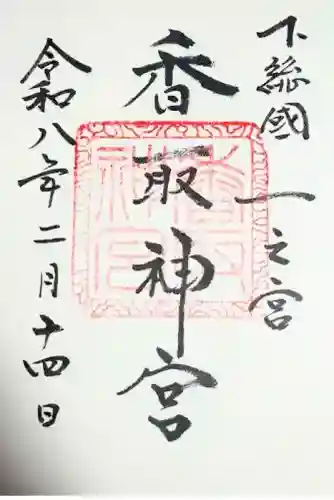 下総國 一之宮
香取神宮
令和八年二月十四日
香取神宮